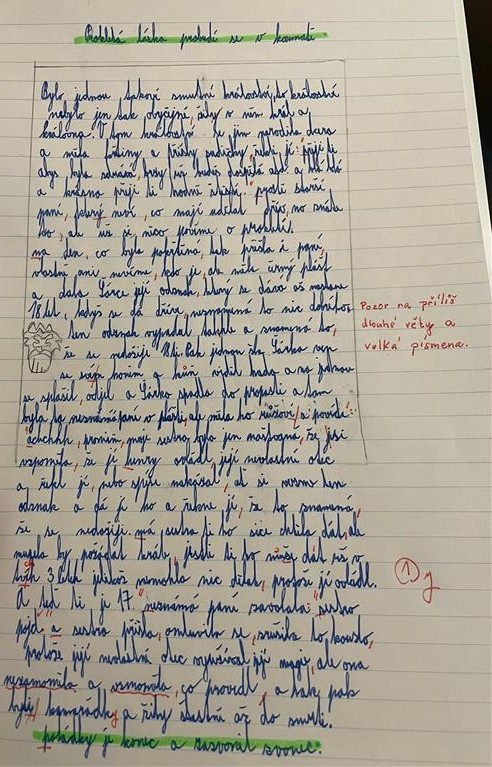 Prokletá láska probudí se v komnatě
Bylo jednou takové smutné království, to království
nebylo jen tak obyčejné, žily v něm král a
královna. V tom království se jim narodila dcera
a měla křtiny a přišly sudičky, řekli jí: přeji ti
abys byla zdravá,
a krásná přeji ti hodně štěstí. starší
paní, který neví, co mají udělat
to, ale už si něco povíme o prokletí.
na den, co byla pokřtěna, tak přišla i paní,
vlastně ani nevíme, kdo je ale měla černý plášť
a dala Šárce její odznak, který se dává až nastane
18 let, když se dá dříve, neznamená to nic dobrého
ten odznak vypadal takhle a znamená to,
že se nedožiji 18ti. Pak jednou šla Šárka
se svým koněm a kůň viděl hada a najednou
se splašil, odjel a Šárka spadla do propasti a tam
byla ta neznámá paní v plášti, ale měla ho růžový a povídá:
achchah, promiň, moje sestra byla jen naštvaná, že jsi
vzpomněla, že jí ovládl, její nevlastní otec
a řekl jí, nebo spíše nakázal, ať si vezme ten
odznak a dá jí ho a řekne jí, že to znamená,
že se nedožiji. má sestra ti ho sice chtěla dát, ale
musela by požádat krále, jestli ti ho může dát už v
těch 3 letech jelikož nemohla nic dělat, protože jí ovládl.
A teď ti je 17. neznámá paní zavolala: "sestro
pojď" a sestra přišla, omluvila se, zrušila to kouzlo,
protože její nevlastní otec využíval její magii, ale ona
nezapomněla a vzpomněla, co provedl, a tak pak
byly kamarádky a žily šťastně až do smrti.
pohádky je konec a zazvonil zvonec.
Pozor na příliš
dlouhé věty a
velká písmena.
1